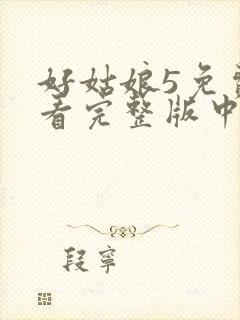 好姑娘5免费
看完整版中
段寧